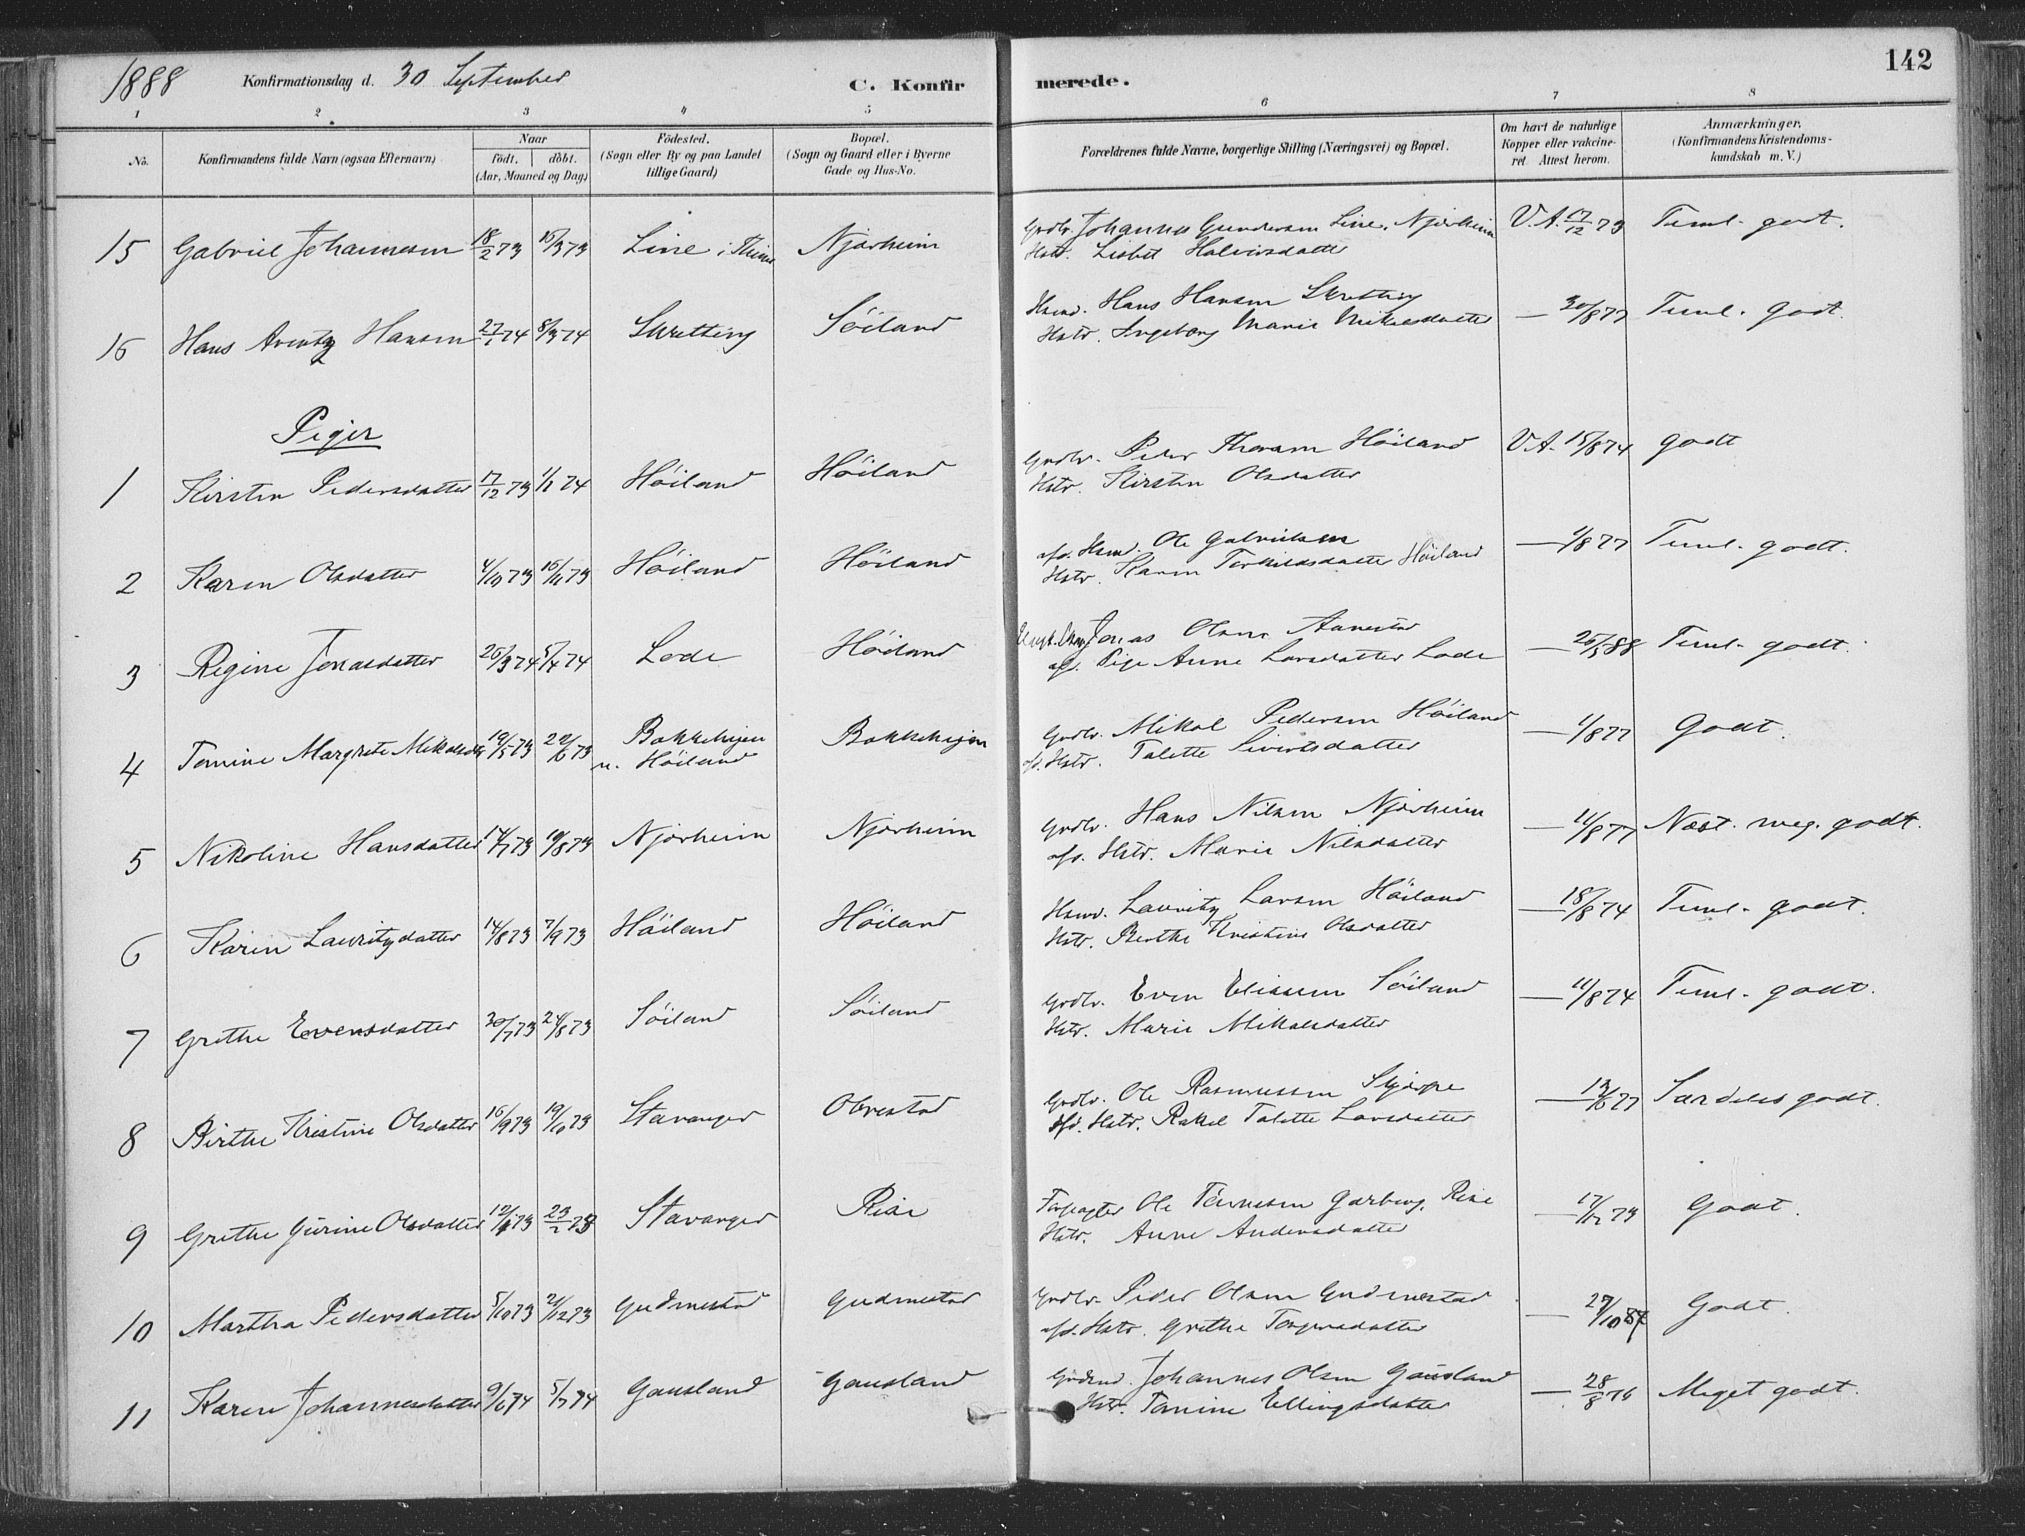 142
1888 Konfirmationsdag d. 30 September C. Konfirmerede.
1 2 3 4 5 6 7 8
No. Konfirmandens fulde Navn (ogsaa Efternavn) Naar født. døbt. (Aar, Maaned og Dag) Födested. (Sogn eller By og paa Landet tillige Gaard) Bopæl. (Sogn og Gaard eller i Byerne Gade og Hus-No. Forældrenes fulde Navne, borgerlige Stilling (Næringsvei) og Bopæl. Om havt de naturlige Kopper eller vakcineret. Attest herom. Anmærkninger. (Konfirmandens Kristendomskundskab m. V.)
15 Gabriel Johannesen 18/2 73 16/3 73 Line i Thime Njærheim Grdbr. Johannes Gundersen Line, Njærheim V.A. 17/12 73 Teml. godt.
Hstr. Lisbet Halvorsdatter
16 Hans Arentz Hansen 27/1 74 8/3 74 Skretting Söiland Hsmd. Hans Hansen Skretting — 30/8 77 Teml. godt.
Hstr. Ingeborg Marie Mikalsdatter
Piger
1 Kirsten Pedersdatter 17/12 73 1/1 74 Höiland Höiland Grdbr. Peder Thorsen Höiland V.A. 15/8 74 godt
Hstr. Kirsten Olsdatter
2 Karen Olsdatter 4/10 73 16/11 73 Höiland Höiland afd. Hsmd. Ole Gabrielsen — 1/8 77 Teml. godt.
Hstr. Karen Torkildsdatter Höiland
3 Regine Jonasdatter 26/3 74 5/4 74 Lode Höiland Jonas Olsen Aanestad — 26/5 88 Teml. godt.
afd. Pige Anne Larsdatter Lode
4 Tomine Margrete Mikalsdtr 19/5 73 22/6 73 Bakkehejen Bakkehejen Grdbr. Mikal Pedersen Höiland — 1/8 77 Godt.
u. Höiland afd. Hstr. Talette Sivertsdatter
5 Nikoline Hansdatter 14/7 73 10/8 73 Njærheim Njærheim Grdbr. Hans Nilsen Njærheim — 11/8 77 Næst. meg. godt.
afd. Hstr. Marie Nilsdatter
6 Karen Lauritzdatter 14/8 73 7/9 73 Höiland Höiland Hsmd. Lauritz Larsen Höiland — 18/8 74 Teml. godt.
Hstr. Berthe Kristine Olsdatter
7 Grethe Evensdatter 30/7 73 24/8 73 Söiland Söiland Grdbr. Even Eliassen Söiland — 11/8 74 Teml. godt.
Hstr. Marie Mikalsdatter
8 Birthe Kristine Olsdatter 16/9 73 19/10 73 Stavanger Obrestad Grdbr. Ole Rasmussen Skjærpe — 13/6 77 Særdeles godt.
afd. Hstr. Rakel Talette Larsdatter
9 Grethe Gurine Olsdatter 12/1 73 23/2 73 Stavanger Rise Forpagter Ole Tönnesen Garborg, Rise — 17/12 73 Godt.
Hstr. Anne Andersdatter
10 Martha Pedersdatter 5/10 73 21/12 73 Gudmestad Gudmestad Grdbr. Peder Olsen Gudmestad — 29/10 87 Godt.
afd. Hstr. Grethe Torgersdatter
11 Karen Johannesdatter 9/6 74 5/7 74 Gausland Gausland Johannes Olsen Gausland — 28/8 76 Meget godt.
Hstr. Tomine Ellingsdatter